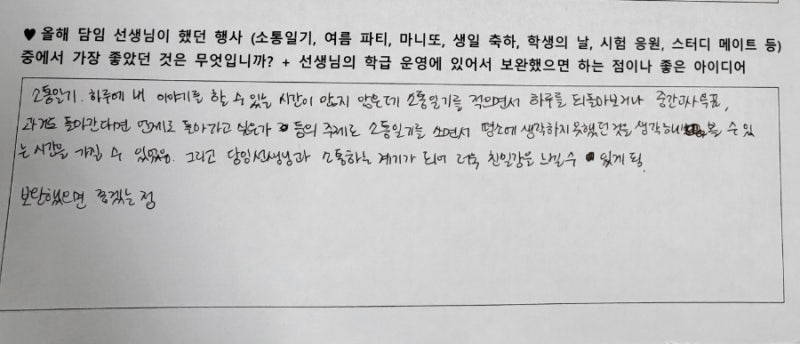 ♥ 올해 담임 선생님이 했던 행사 (소통일기, 여름 파티, 마니또, 생일 축하, 학생의 날, 시험 응원, 스터디 메이트 등)
중에서 가장 좋았던 것은 무엇입니까? + 선생님의 학급 운영에 있어서 보완했으면 하는 점이나 좋은 아이디어
소통일기. 하루에 내 이야기를 할 수 있는 시간이 많지 않은데 소통일기를 적으면서 하루를 되돌아보거나 중간고사 목표,
과거로 돌아간다면 언제로 돌아가고 싶은가 등의 주제로 소통일기를 쓰면서 평소에 생각하지 못했던 것을 생각해 볼 수 있
는 시간을 가질 수 있었음. 그리고 담임선생님과 소통하는 계기가 되어 더욱 친밀감을 느낄 수 있게 됨.
보완했으면 좋겠는 점